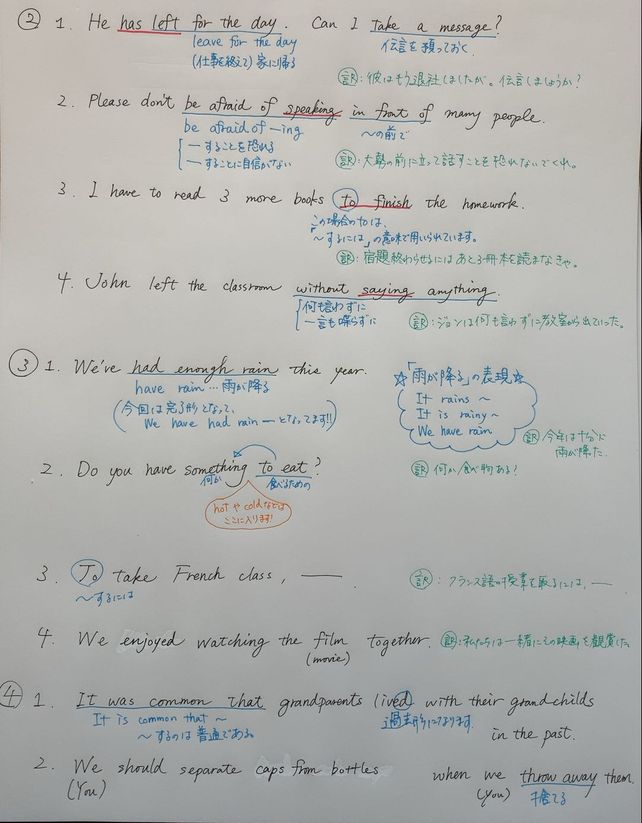 ② 1. He has left for the day. Can I take a message?
leave for the day 伝言を預っておく
(仕事を終えて) 家に帰る
訳:彼はもう退社しましたが。伝言しましょうか?
2. Please don't be afraid of speaking in front of many people.
be afraid of -ing ~の前で
ーすることを恐れる
ーすることに自信がない
訳:大勢の前に立って話すことを恐れないでくれ。
3. I have to read 3 more books to finish the homework.
この場合のtoは、
「~するには」の意味で用いられています。
訳:宿題終わらせるにはあと3冊本を読まなきゃ。
4. John left the classroom without saying anything.
何も言わずに
一言も喋らずに
訳:ジョンは何も言わずに教室から出ていった。
③ 1. We've had enough rain this year.
have rain…雨が降る
(今回は完了形となって、
We have had rain ーとなってます!!)
☆「雨が降る」の表現☆
It rains ~
It is rainy ~
We have rain
訳 今年は十分に
雨が降た.
2. Do you have something to eat?
何か 食べるための
hot や cold などは
ここに入ります!
訳 何か食べ物ある?
3. To take French class, ー.
~するには
訳:フランス語の授業を取るには、ー
4. We enjoyed watching the film together.
(movie)
訳:私たちは一緒にその映画を観賞した
④ 1. It was common that grandparents lived with their grandchilds
It is common that ~ 過去形になります.
~するのは普通である in the past.
2. We should separate caps from bottles when we throw away them.
(You) (you) 捨てる